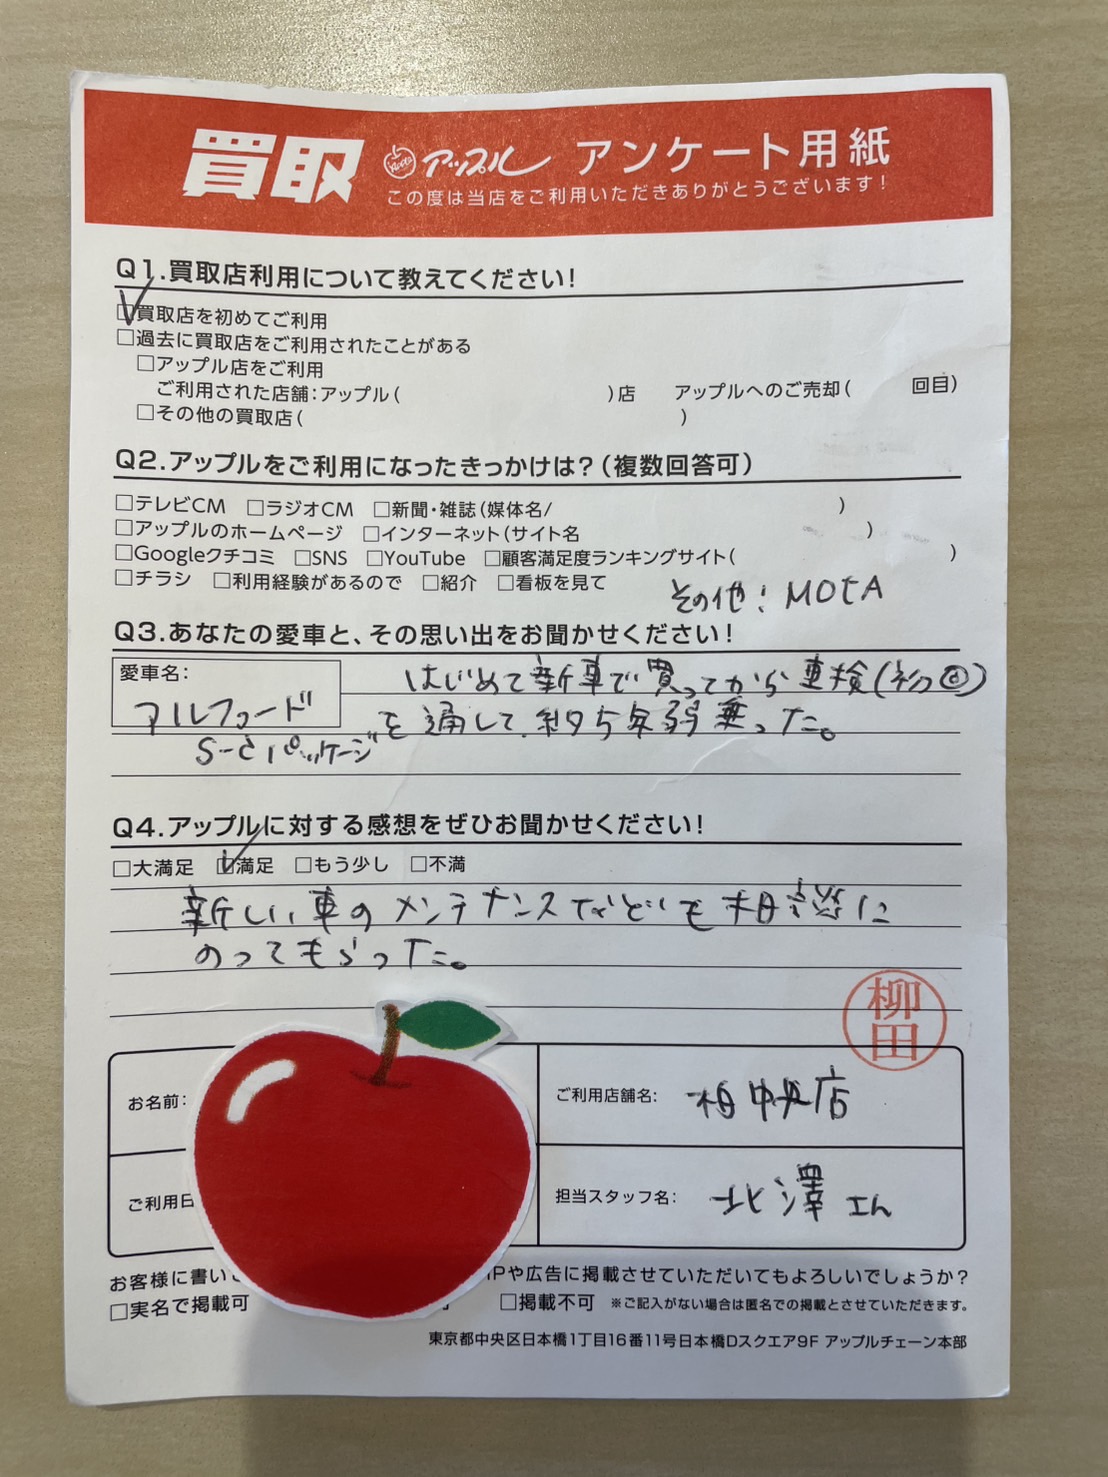 買取 Apple アップル アンケート用紙
この度は当店をご利用いただきありがとうございます!
Q1.買取店利用について教えてください!
☑買取店を初めてご利用
□過去に買取店をご利用されたことがある
□アップル店をご利用
ご利用された店舗:アップル( )店 アップルへのご売却( 回目)
□その他の買取店( )
Q2.アップルをご利用になったきっかけは?(複数回答可)
□テレビCM □ラジオCM □新聞・雑誌(媒体名/ )
□アップルのホームページ □インターネット(サイト名 )
□Googleクチコミ □SNS □YouTube □顧客満足度ランキングサイト( )
□チラシ □利用経験があるので □紹介 □看板を見て
その他:MOtA
Q3.あなたの愛車と、その思い出をお聞かせください!
愛車名:
アルファード
S-Cパッケージ
はじめて新車で買ってから車検(初回)
を通して、約5年弱乗った。
Q4.アップルに対する感想をぜひお聞かせください!
□大満足 ☑満足 □もう少し □不満
新しい車のメンテナンスなどいも相談に
のってもらった。
柳田
お名前:
ご利用店舗名: 柏中央店
ご利用日
担当スタッフ名: 北澤さん
お客様に書いて HPや広告に掲載させていただいてもよろしいでしょうか?
□実名で掲載可 □掲載不可 ※ご記入がない場合は匿名での掲載とさせていただきます。
東京都中央区日本橋1丁目16番11号日本橋Dスクエア9F アップルチェーン本部